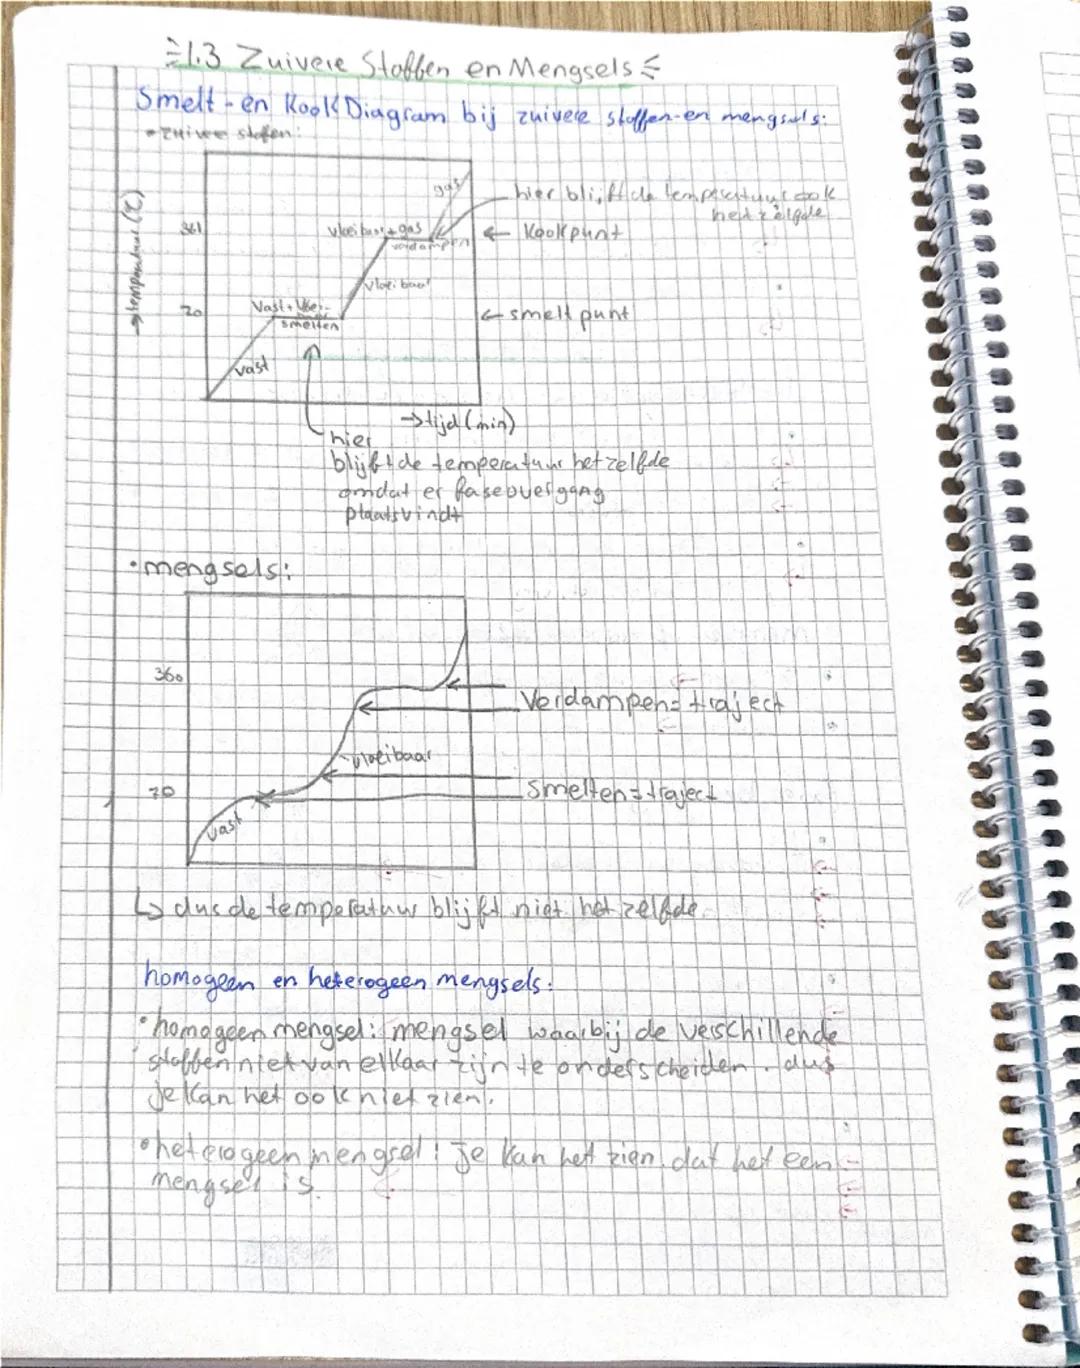 1.3 Zuivere Stoffen en Mengsels
Smelt - en Kook Diagram bij zuivere stoffen en mengsels:
• zuivere stofen:
gas
hier blijft de temperatuur ook
het zelgde
361
vloeibaar + gas
← Kookpunt
verdampen
→ temperatuur (°C)
vloeibaar
70
Vast + Vloei-
← smelt punt
smelten
vast
→ tijd (min)
hier
blijft de temperatuur het zelfde
omdat er faseovergang
plaatsvindt
• mengsels:
360
Verdampen = traject
vloeibaar
70
Smelten = traject
vast
↳ dus de temperatuur blijft niet het zelfde.
homogeen en heterogeen mengsels:
• homogeen mengsel: mengsel waarbij de verschillende
stoffen niet van elkaar zijn te onderscheiden. dus
je kan het ook niet zien.
• heterogeen mengsel: je kan het zien dat het een
mengsel is.